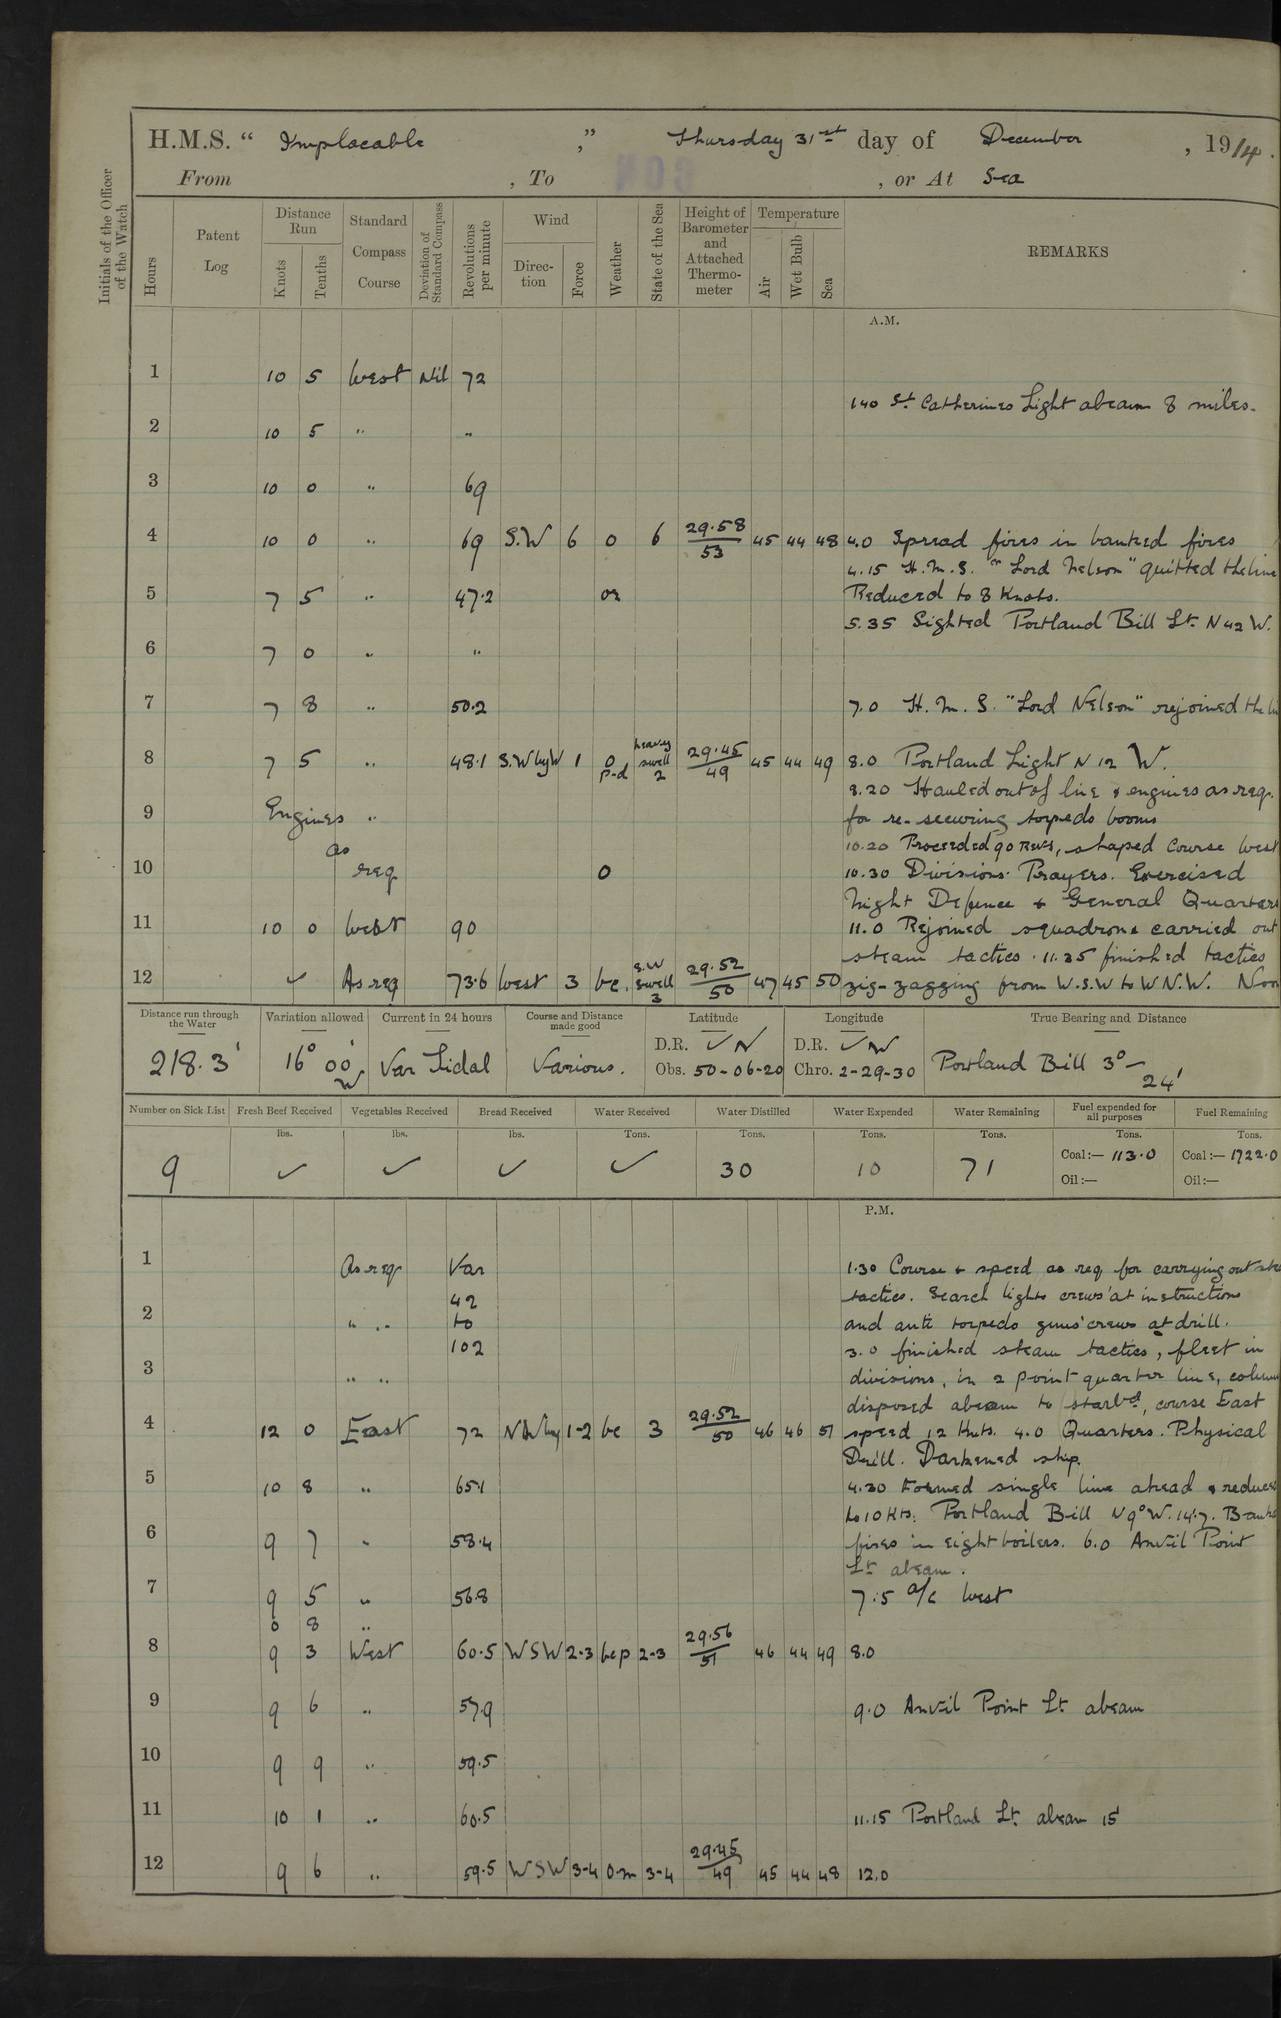 H.M.S. “ Implacable ,” Thursday 31st day of December , 1914.
From , To , or At Sea
Initials of the Officer of the Watch
Hours
Patent Log
Distance Run
Knots
Tenths
Standard Compass Course
Deviation of Standard Compass
Revolutions per minute
Wind
Direction
Force
Weather
State of the Sea
Height of Barometer and Attached Thermometer
Temperature
Air
Wet Bulb
Sea
REMARKS
A.M.
1 10 5 West Nil 72
1.40 St. Catherines Light abeam 8 miles.
2 10 5 " "
3 10 0 " 69
4 10 0 " 69 S.W 6 o 6 29.58/53 45 44 48 4.0 Spread fires in banked fires
4.15 H.M.S. "Lord Nelson" quitted the line
5 7 5 " 47.2 or Reduced to 8 Knots.
5.35 Sighted Portland Bill Lt. N 42 W.
6 7 0 " "
7 7 8 " 50.2 7.0 H.M.S. "Lord Nelson" rejoined the
8 7 5 " 48.1 S.W by W 1 o p-d heavy swell 2 29.45/49 45 44 49 8.0 Portland Light N 12 W.
8.20 Hauled out of line & engines as req.
9 Engines " for re-securing torpedo booms
as 10.20 Proceeded 90 Revs, shaped course West
10 req o 10.30 Divisions. Prayers. Exercised
Night Defence & General Quarters
11 10 0 West 90 11.0 Rejoined squadron & carried out
steam tactics. 11.25 finished tactics
12 ✓ As req 73.6 West 3 bc. S.W Swell 3 29.52/50 47 45 50 zig-zagging from W.S.W to W N.W. Noon
Distance run through the Water
Variation allowed
Current in 24 hours
Course and Distance made good
Latitude
Longitude
True Bearing and Distance
218.3' 16° 00' W Var Tidal Various.
D.R. ✓ N
Obs. 50-06-20
D.R. ✓ W
Chro. 2-29-30
Portland Bill 3° — 24'
Number on Sick List
Fresh Beef Received
Vegetables Received
Bread Received
Water Received
Water Distilled
Water Expended
Water Remaining
Fuel expended for all purposes
Fuel Remaining
lbs. lbs. lbs. Tons. Tons. Tons. Tons. Tons. Tons.
9 ✓ ✓ ✓ ✓ 30 10 71
Coal:— 113.0 Coal:— 1722.0
Oil:— Oil:—
P.M.
1 As req Var 1.30 Course & speed as req for carrying out
42 tactics. Search lights crews' at instructions
2 " " to and anti torpedo guns' crews at drill.
102 3.0 finished steam tactics, fleet in
3 " " divisions, in 2 point quarter line, column
disposed abeam to starbd, course East
4 12 0 East 72 1-2 bc 3 29.52/50 46 46 51 speed 12 Knts. 4.0 Quarters. Physical
Drill. Darkened ship.
5 10 8 " 65.1 4.30 Formed single line ahead & reduced
to 10 Kts. Portland Bill N 9° W. 14'.7. Banked
6 9 7 " 58.4 fires in eight boilers. 6.0 Anvil Point
Lt. abeam.
7 9 5 " 56.8 7.5 a/c West
0 8 "
8 9 3 West 60.5 W S W 2-3 bcp 2-3 29.56/51 46 44 49 8.0
9 9 6 " 57.9 9.0 Anvil Point Lt. abeam
10 9 9 " 59.5
11 10 1 " 60.5 11.15 Portland Lt. abeam 15'
12 9 6 " 59.5 W S W 3-4 o.m 3-4 29.45/49 45 44 48 12.0